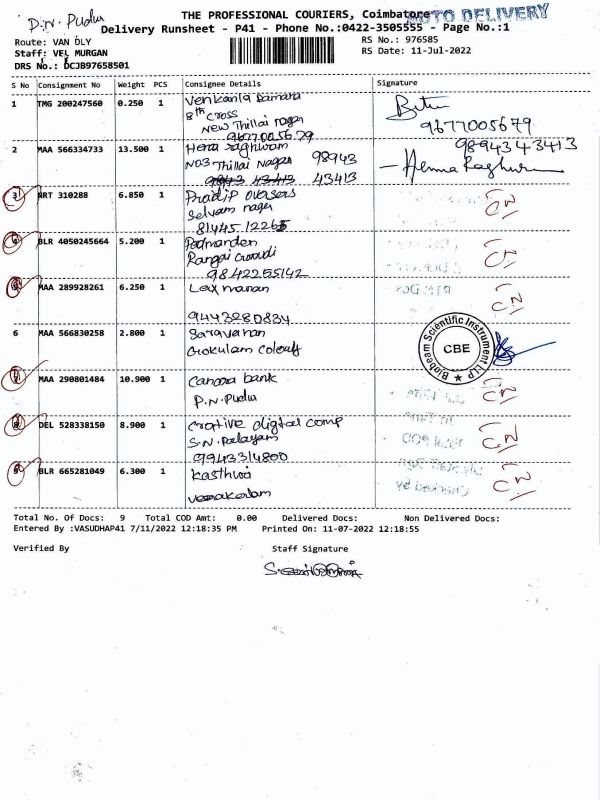 P.N. Pudur
THE PROFESSIONAL COURIERS, Coimbatore
AUTO DELIVERY
Delivery Runsheet - P41 - Phone No.:0422-3505555 - Page No.:1
Route: VAN DLY
RS No.: 976585
Staff: VEL MURGAN
RS Date: 11-Jul-2022
DRS No.: DCJB97658501
S No Consignment No Weight PCS Consignee Details Signature
1 TMG 200247560 0.250 1
8th cross
New Thillai nagar
9677005679
9677005679
2 MAA 566334733 13.500 1 Hema raghuram
NO3 Thillai Nagar 98943
9843 43413 43413
9894343413
Hema Raghuram
3 NRT 310288 6.850 1 Pradip overseas
Selvam nagar
8144512265
CN
4 BLR 4050245664 5.200 1
9842255142
CN
5 MAA 289928261 6.250 1 Laxmanan
9443280834
CN
6 MAA 566830258 2.800 1 Saravanan
Gokulam colony
Biobeam Scientific Instrument LLP
CBE
7 MAA 290801484 10.900 1 Canara bank
P.N. Pudur
CN
8 DEL 528338150 8.900 1 Crative digital comp
S.N. Palayam
9943314800
CN
9 BLR 665281049 6.300 1 Kasthuri
CN
Total No. Of Docs: 9 Total COD Amt: 0.00 Delivered Docs: Non Delivered Docs:
Entered By :VASUDHAP41 7/11/2022 12:18:35 PM Printed On: 11-07-2022 12:18:55
Verified By Staff Signature